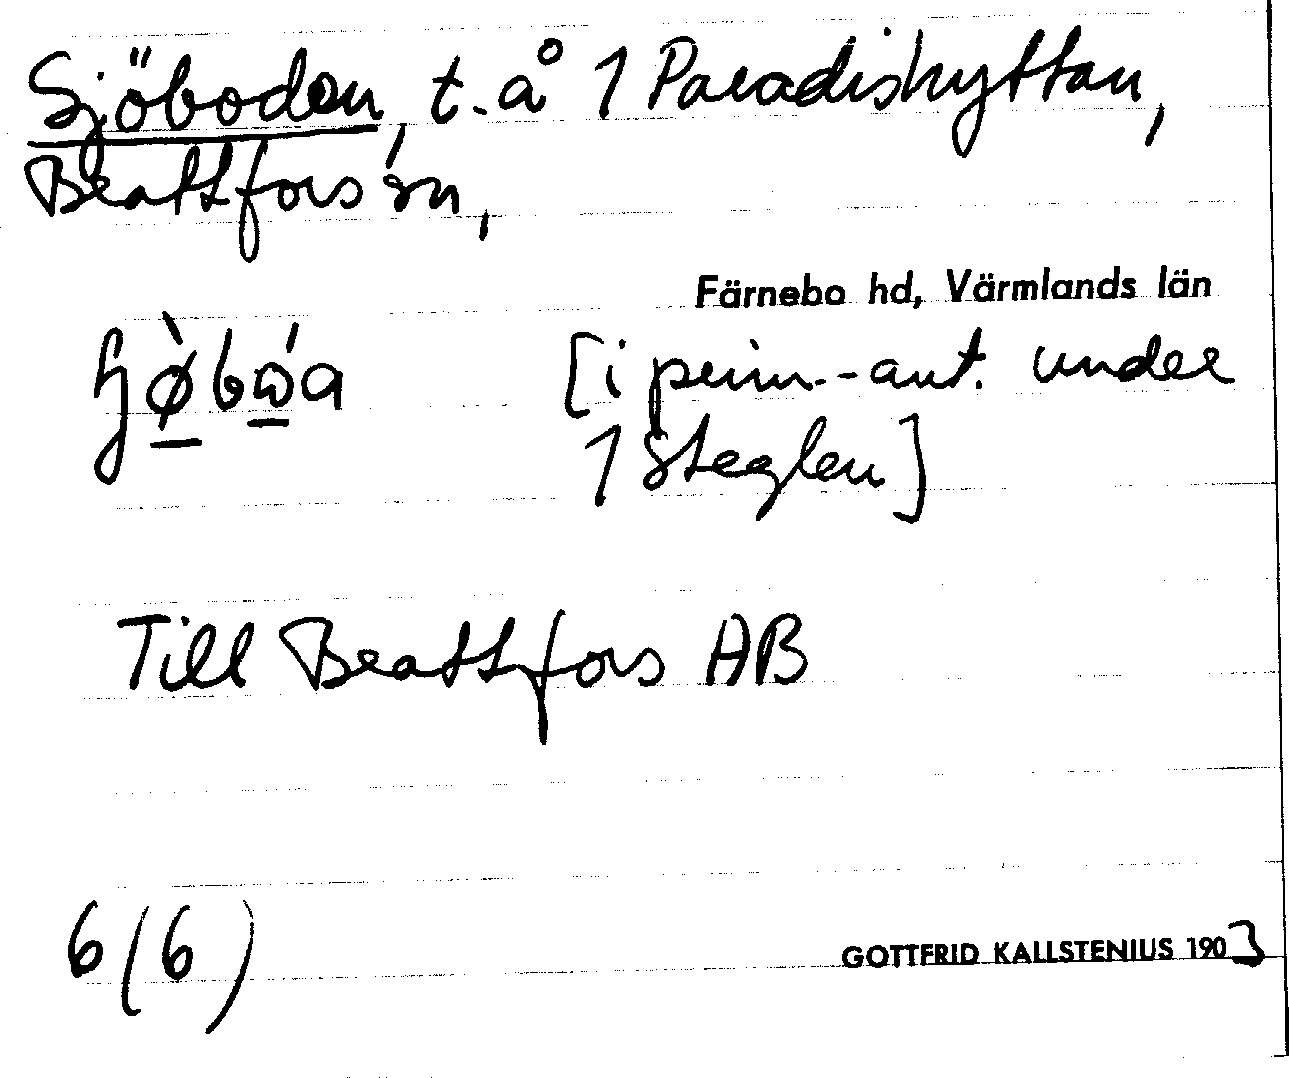 Sjöboden, t. å 1 Paradishyttan,
Beattfors sn,
Färnebo hd, Värmlands län
[i prim.-ant. under
1 Steglen]
Till Beattfors AB
6(6)
GOTTFRID KALLSTENIUS 1903